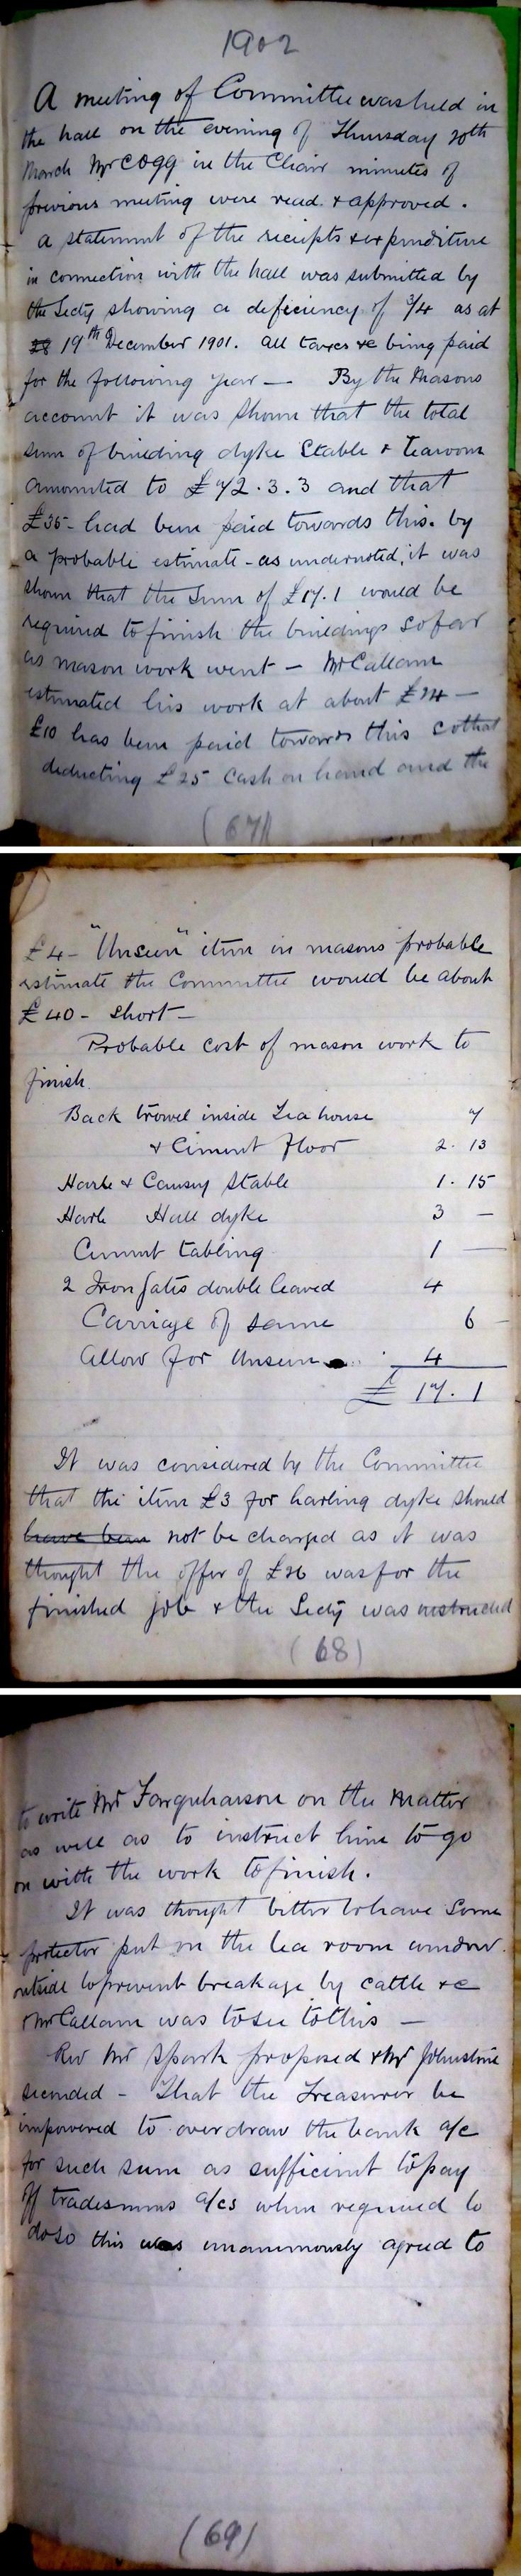 1902
A meeting of Committee was held in
the hall on the evening of Thursday 20th
March Mr Cogg in the Chair minutes of
previous meeting were read & approved.
A statement of the receipts & expenditure
in connection with the hall was submitted by
the Secty showing a deficiency of 7/4 as at
19th December 1901. All taxes &c being paid
for the following year — By the Masons
account it was shown that the total
sum of building dyke Stable & Tearoom
amounted to £72.3.3 and that
£35 - had been paid towards this. by
a probable estimate - as undernoted, it was
shown that the sum of £17.1 would be
required to finish the buildings so far
as mason work went - Mr Callam
estimated his work at about £24 -
£10 has been paid towards this so that
deducting £25 Cash on hand and the
(67)
£4 - "Unseen" item in masons probable
estimate the Committee would be about
£40 - short -
Probable cost of mason work to
finish.
Back trowel inside Tea house 7
& Cement floor 2. 13
Harle & Causey Stable 1. 15
Harle Hall dyke 3 —
Cement tabling 1 —
2 Iron Gates double leaved 4
Carriage of same 6 -
Allow for Unseen 4
£ 17. 1
It was considered by the Committee
that the item £3 for harling dyke should
have been not be charged as it was
thought the offer of £26 was for the
finished job & the Secty was instructed
(68)
to write Mr Farquharson on the matter
as well as to instruct him to go
on with the work to finish.
It was thought better to have some
protector put on the tea room window.
outside to prevent breakage by cattle &c
& Mr Callam was to see to this —
Rev Mr Spark proposed & Mr Johnstone
seconded - That the Treasurer be
impowered to overdraw the bank a/c
for such sum as sufficient to pay
off tradesmens a/cs when required to
do so this was unanimously agreed to
(69)